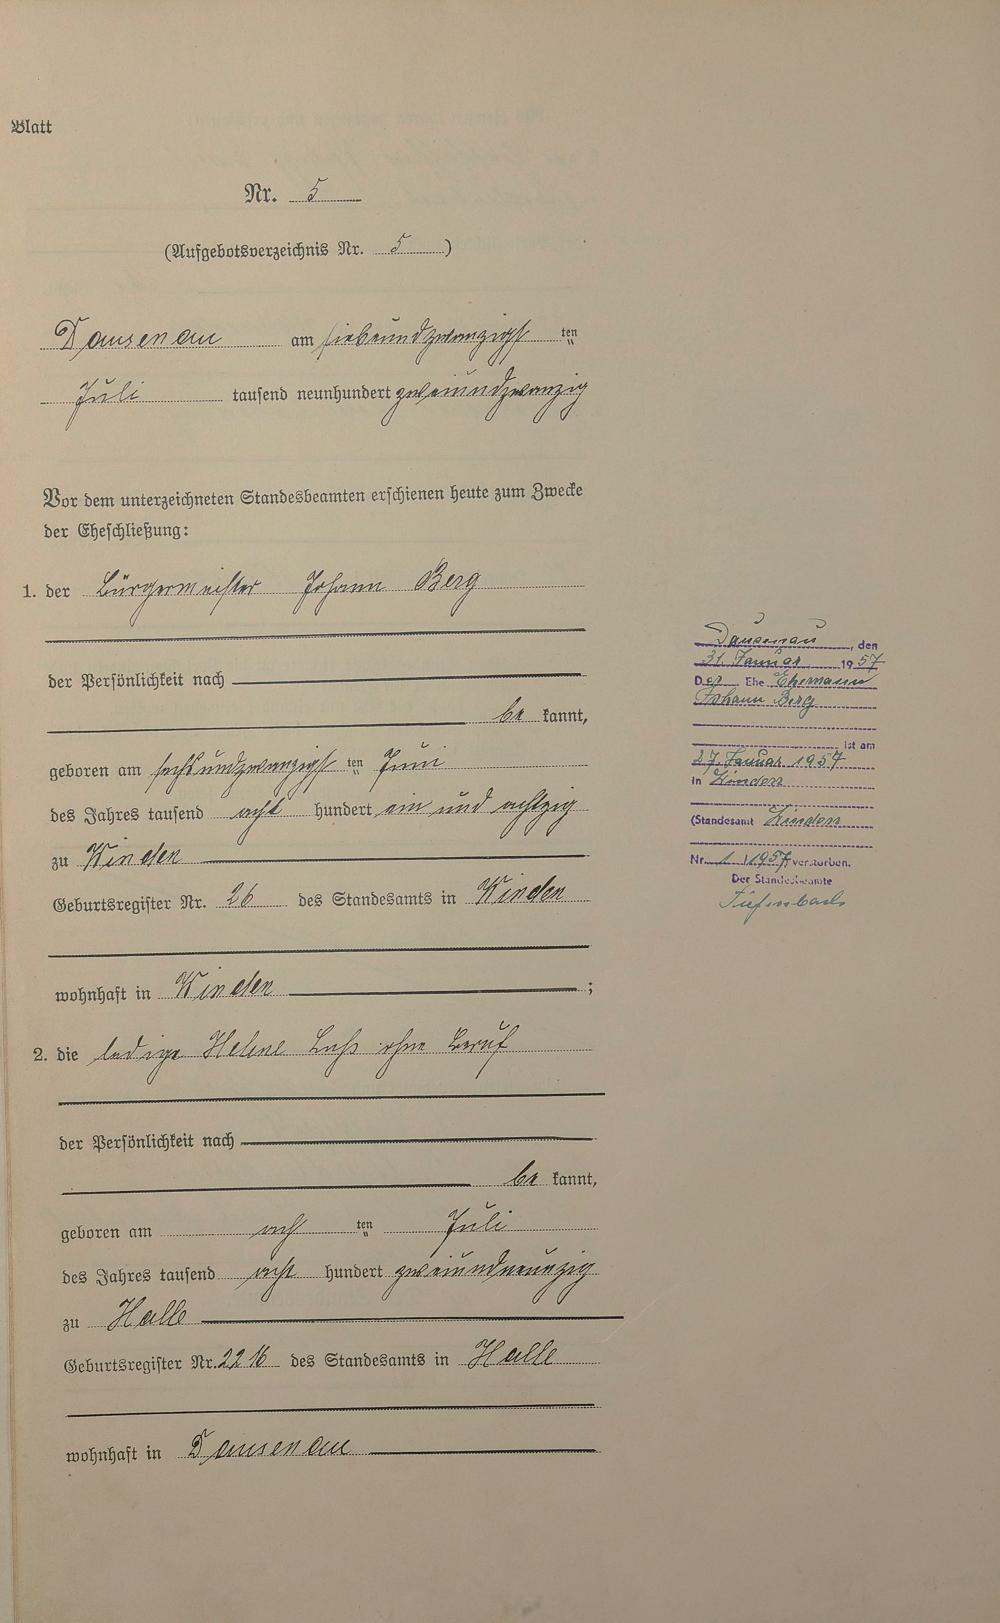 Blatt
Nr. 5
(Aufgebotsverzeichnis Nr. 5)
Dausenau am siebenundzwanzigst ten
Juli tausend neunhundert zweiundzwanzig
Vor dem unterzeichneten Standesbeamten erschienen heute zum Zwecke
der Eheschließung:
1. der Bürgermeister Johann Berg
der Persönlichkeit nach
be kannt,
geboren am sechsundzwanzigst ten Juni
des Jahres tausend acht hundert ein und achtzig
zu Winden
Geburtsregister Nr. 26 des Standesamts in Winden
wohnhaft in Winden ;
2. die ledige Helene ohne Beruf
der Persönlichkeit nach
be kannt,
geboren am ach ten Juli
des Jahres tausend acht hundert zweiundneunzig
zu Halle
Geburtsregister Nr. 2216 des Standesamts in Halle
wohnhaft in Dausenau
Dausenau, den
31. Januar 1957
Der Ehe Ehemann
Johann Berg
ist am
27. Januar 1957
in Winden
(Standesamt Winden
Nr. 1 / 1957 verstorben.
Der Standesbeamte